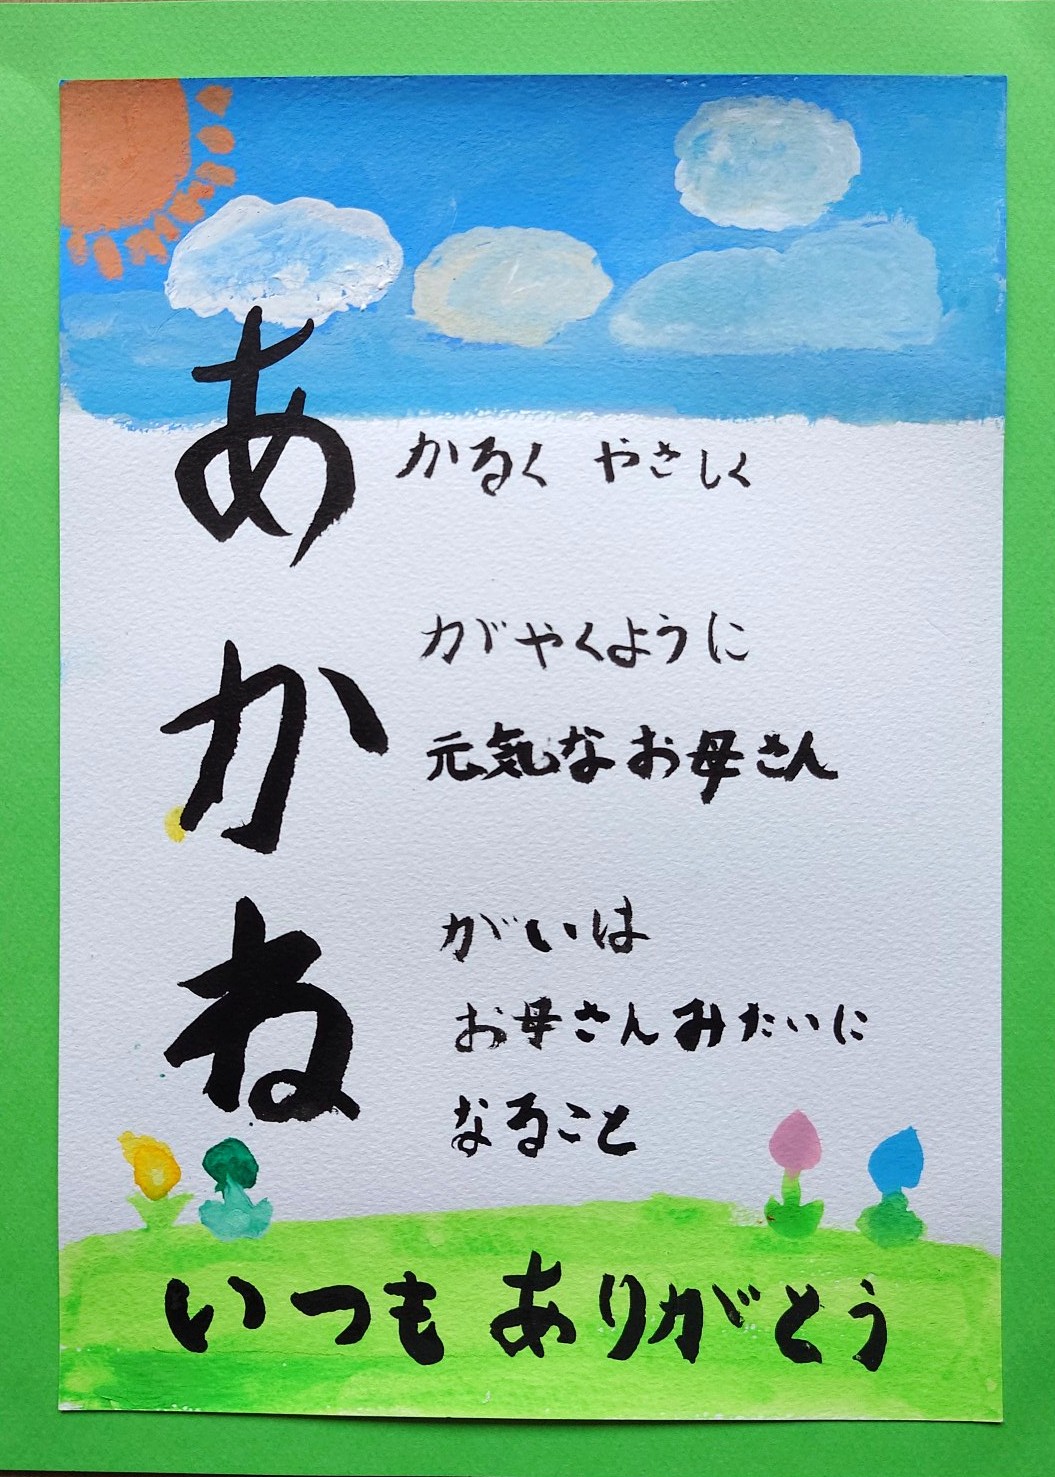 あかるく やさしく
かがやくように
元気なお母さん
ねがいは
お母さんみたいに
なること
いつも ありがとう